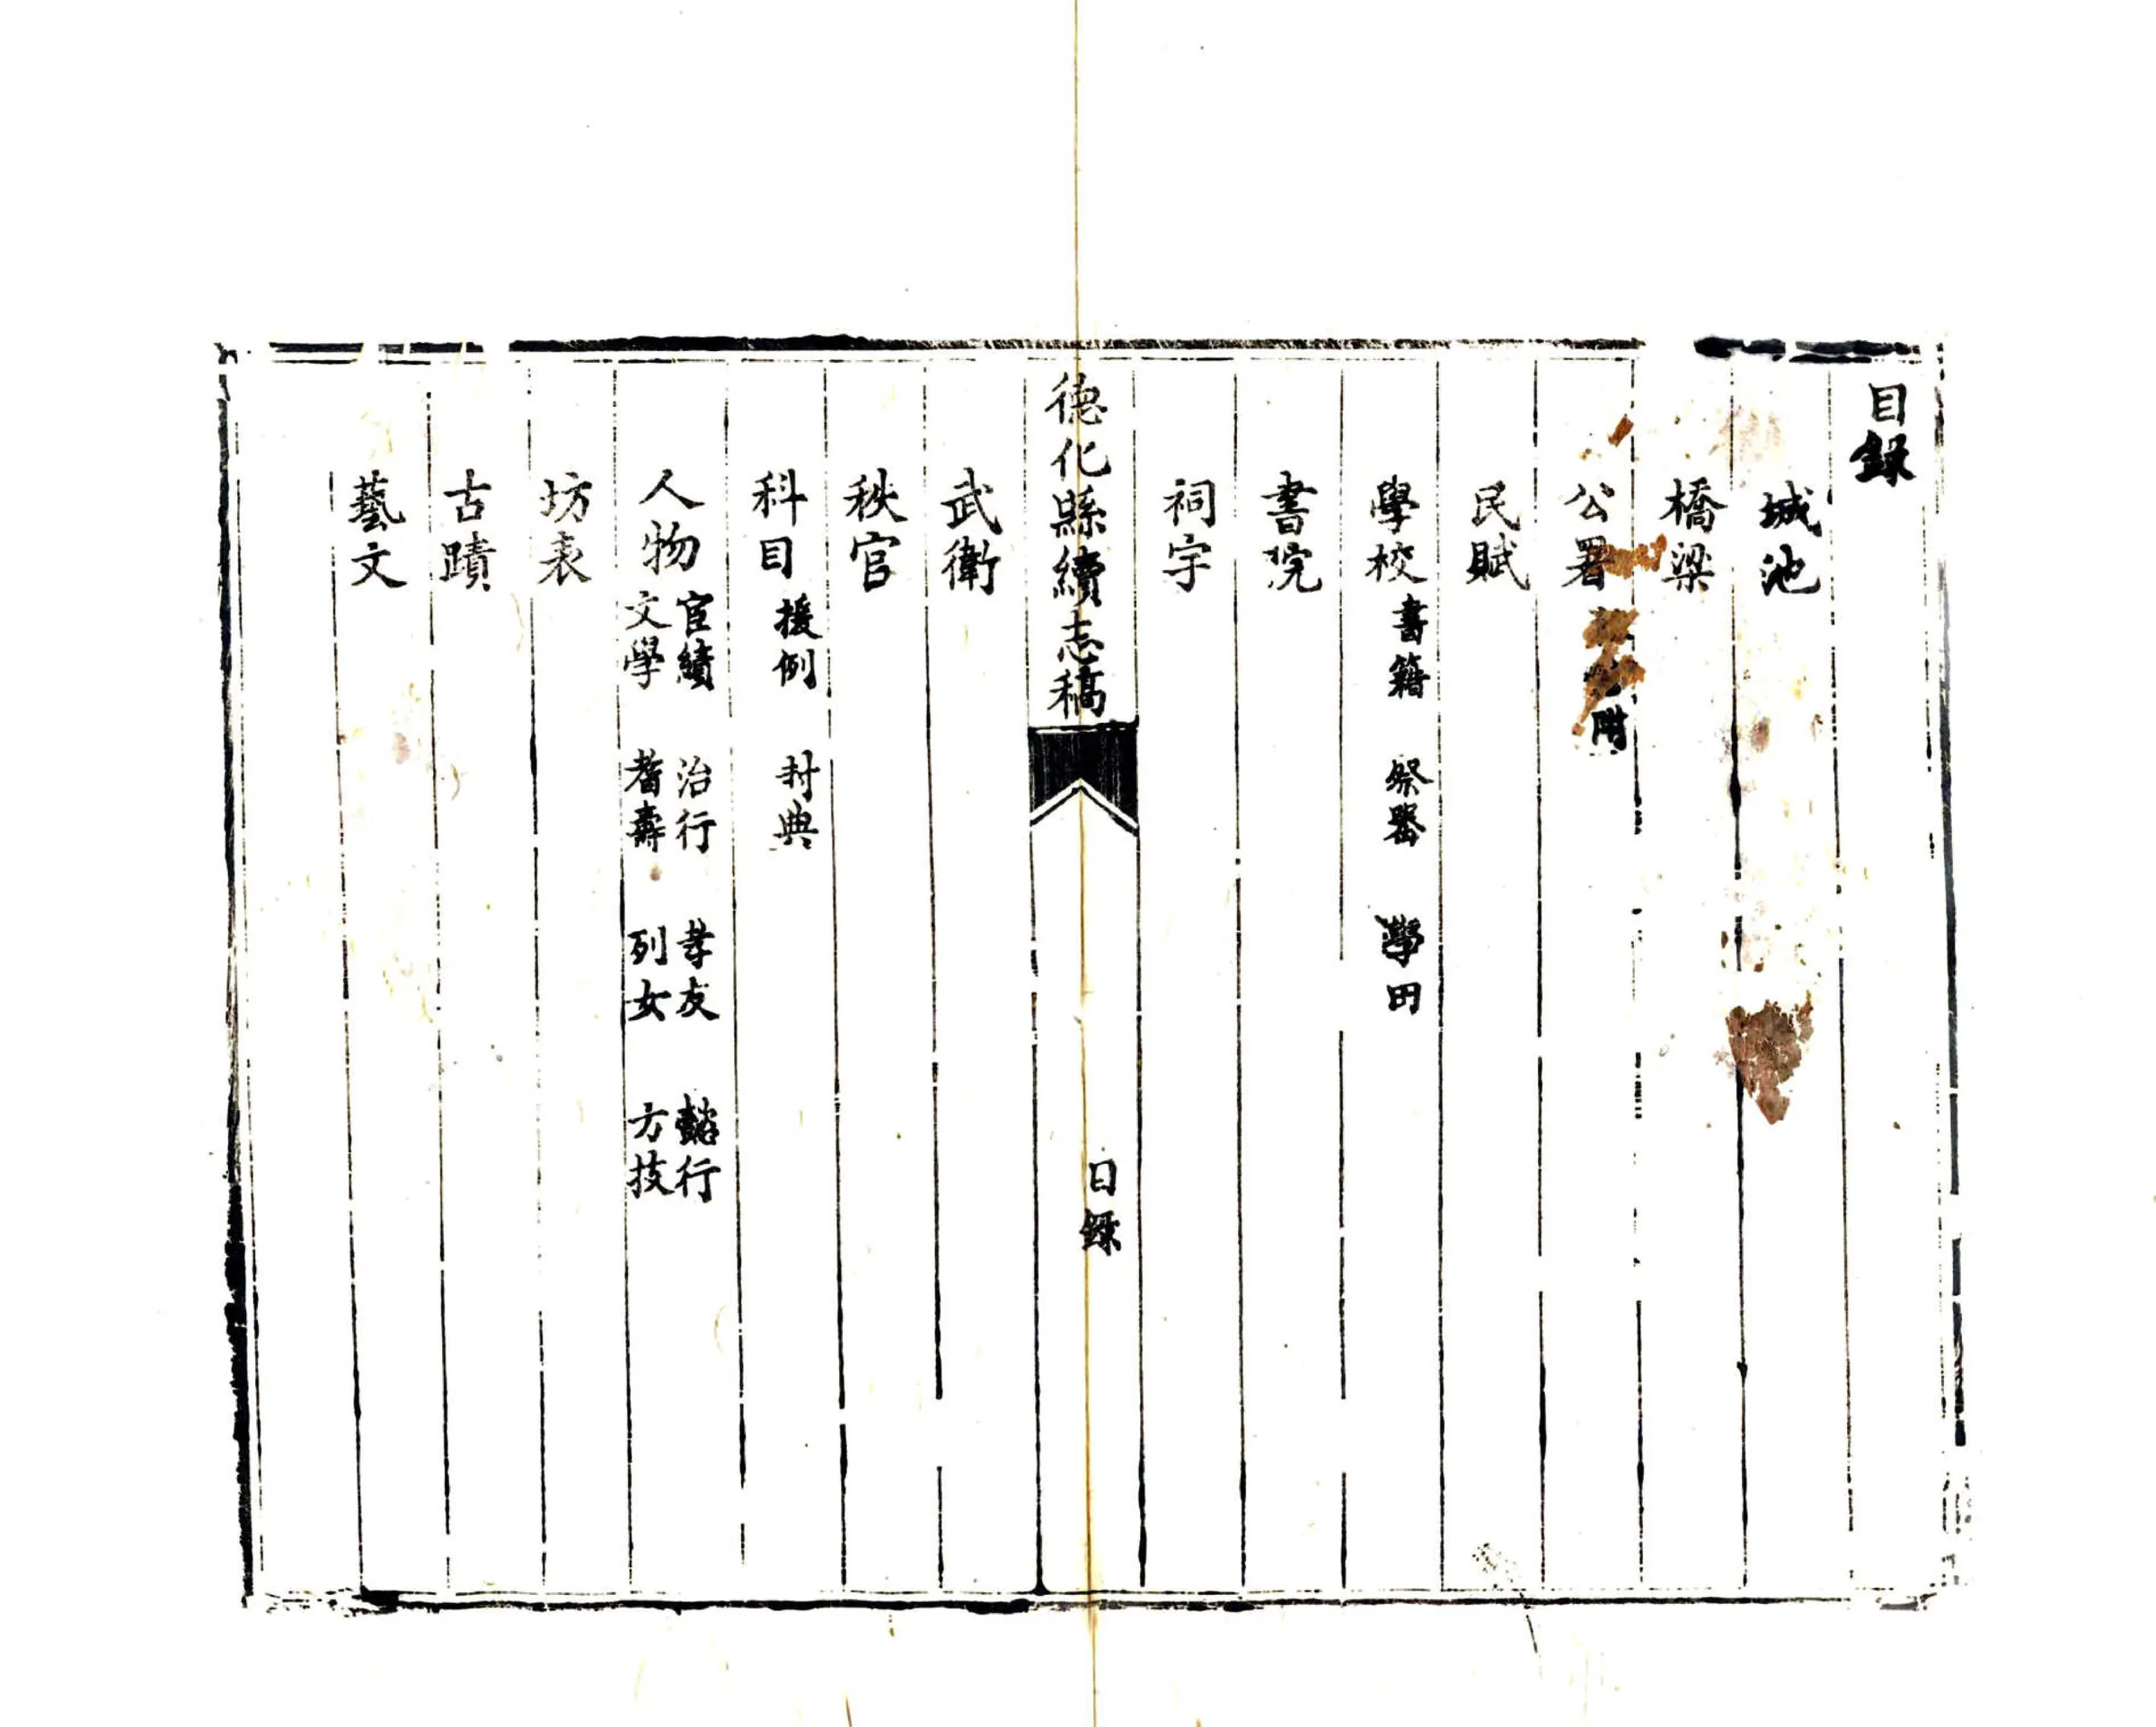 目錄
城池
橋梁
公署 附
民賦
學校 書籍 祭器 學田
書院
祠宇
德化縣續志稿 目錄
武衛
秩官
科目 援例 封典
人物 宦績 治行 孝友 懿行
文學 耆壽 列女 方技
坊表
古蹟
藝文